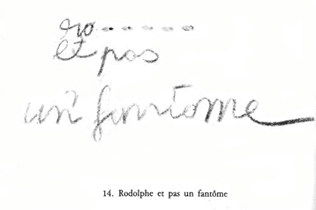 ro......
et pas
un fantome
14. Rodolphe et pas un fantôme